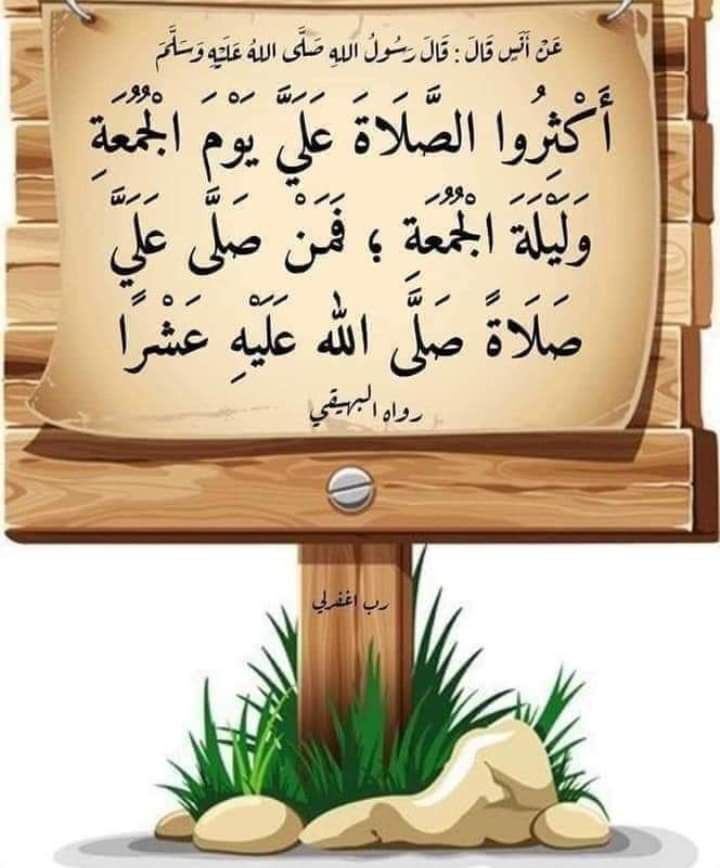 عَنْ أَنَسٍ قَالَ : قَالَ رَسُولُ اللهِ صَلَّى اللهُ عَلَيْهِ وَسَلَّمَ
أَكْثِرُوا الصَّلَاةَ عَلَيَّ يَوْمَ الْجُمُعَةِ
وَلَيْلَةَ الْجُمُعَةِ ؛ فَمَنْ صَلَّى عَلَيَّ
صَلَاةً صَلَّى اللهُ عَلَيْهِ عَشْرًا
رواه البهيقي
رب اغفرلي